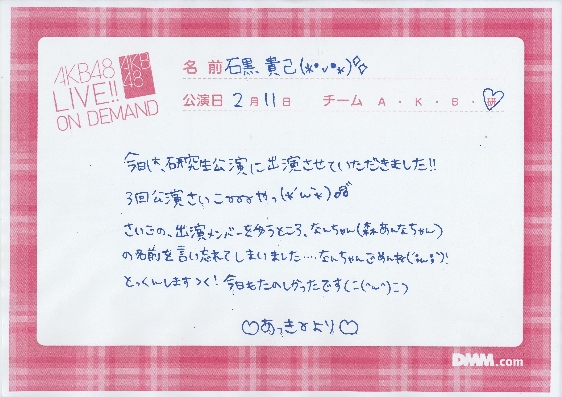 AKB48
LIVE!!
ON DEMAND
AKB
48
名前 石黒貴己(*•v•*)
公演日 2月11日 チーム A・K・B・研
今日は、研究生公演に出演させていただきました!!
3回公演さいこややややっ(*´ω`*)
さいごの、出演メンバーを言うところ、なんちゃん(森あんなちゃん)
の名前を言い忘れてしまいました....なんちゃんごめんね(´;ω;`)!
とっくんしますっく!今日もたのしかったです(⊃(^ω^)⊃)
♡あっきゃより♡
DMM.com